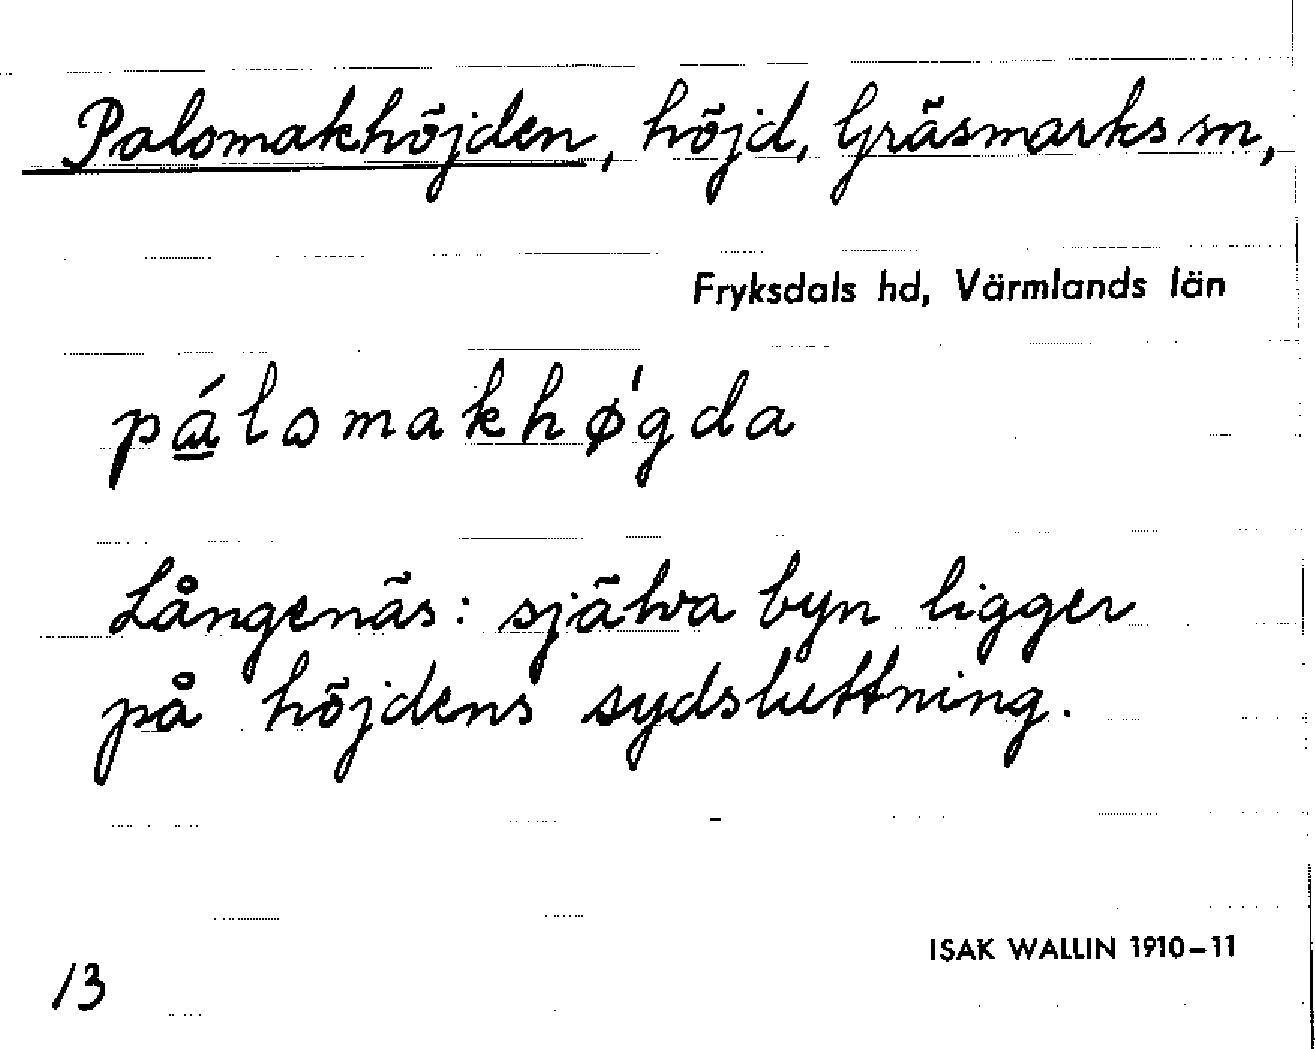 Palomakhöjden, höjd, Gräsmarks sn,
Fryksdals hd, Värmlands län
pálomakhǿgda
Långenäs: själva byn ligger
på höjdens sydsluttning.
ISAK WALLIN 1910–11
13